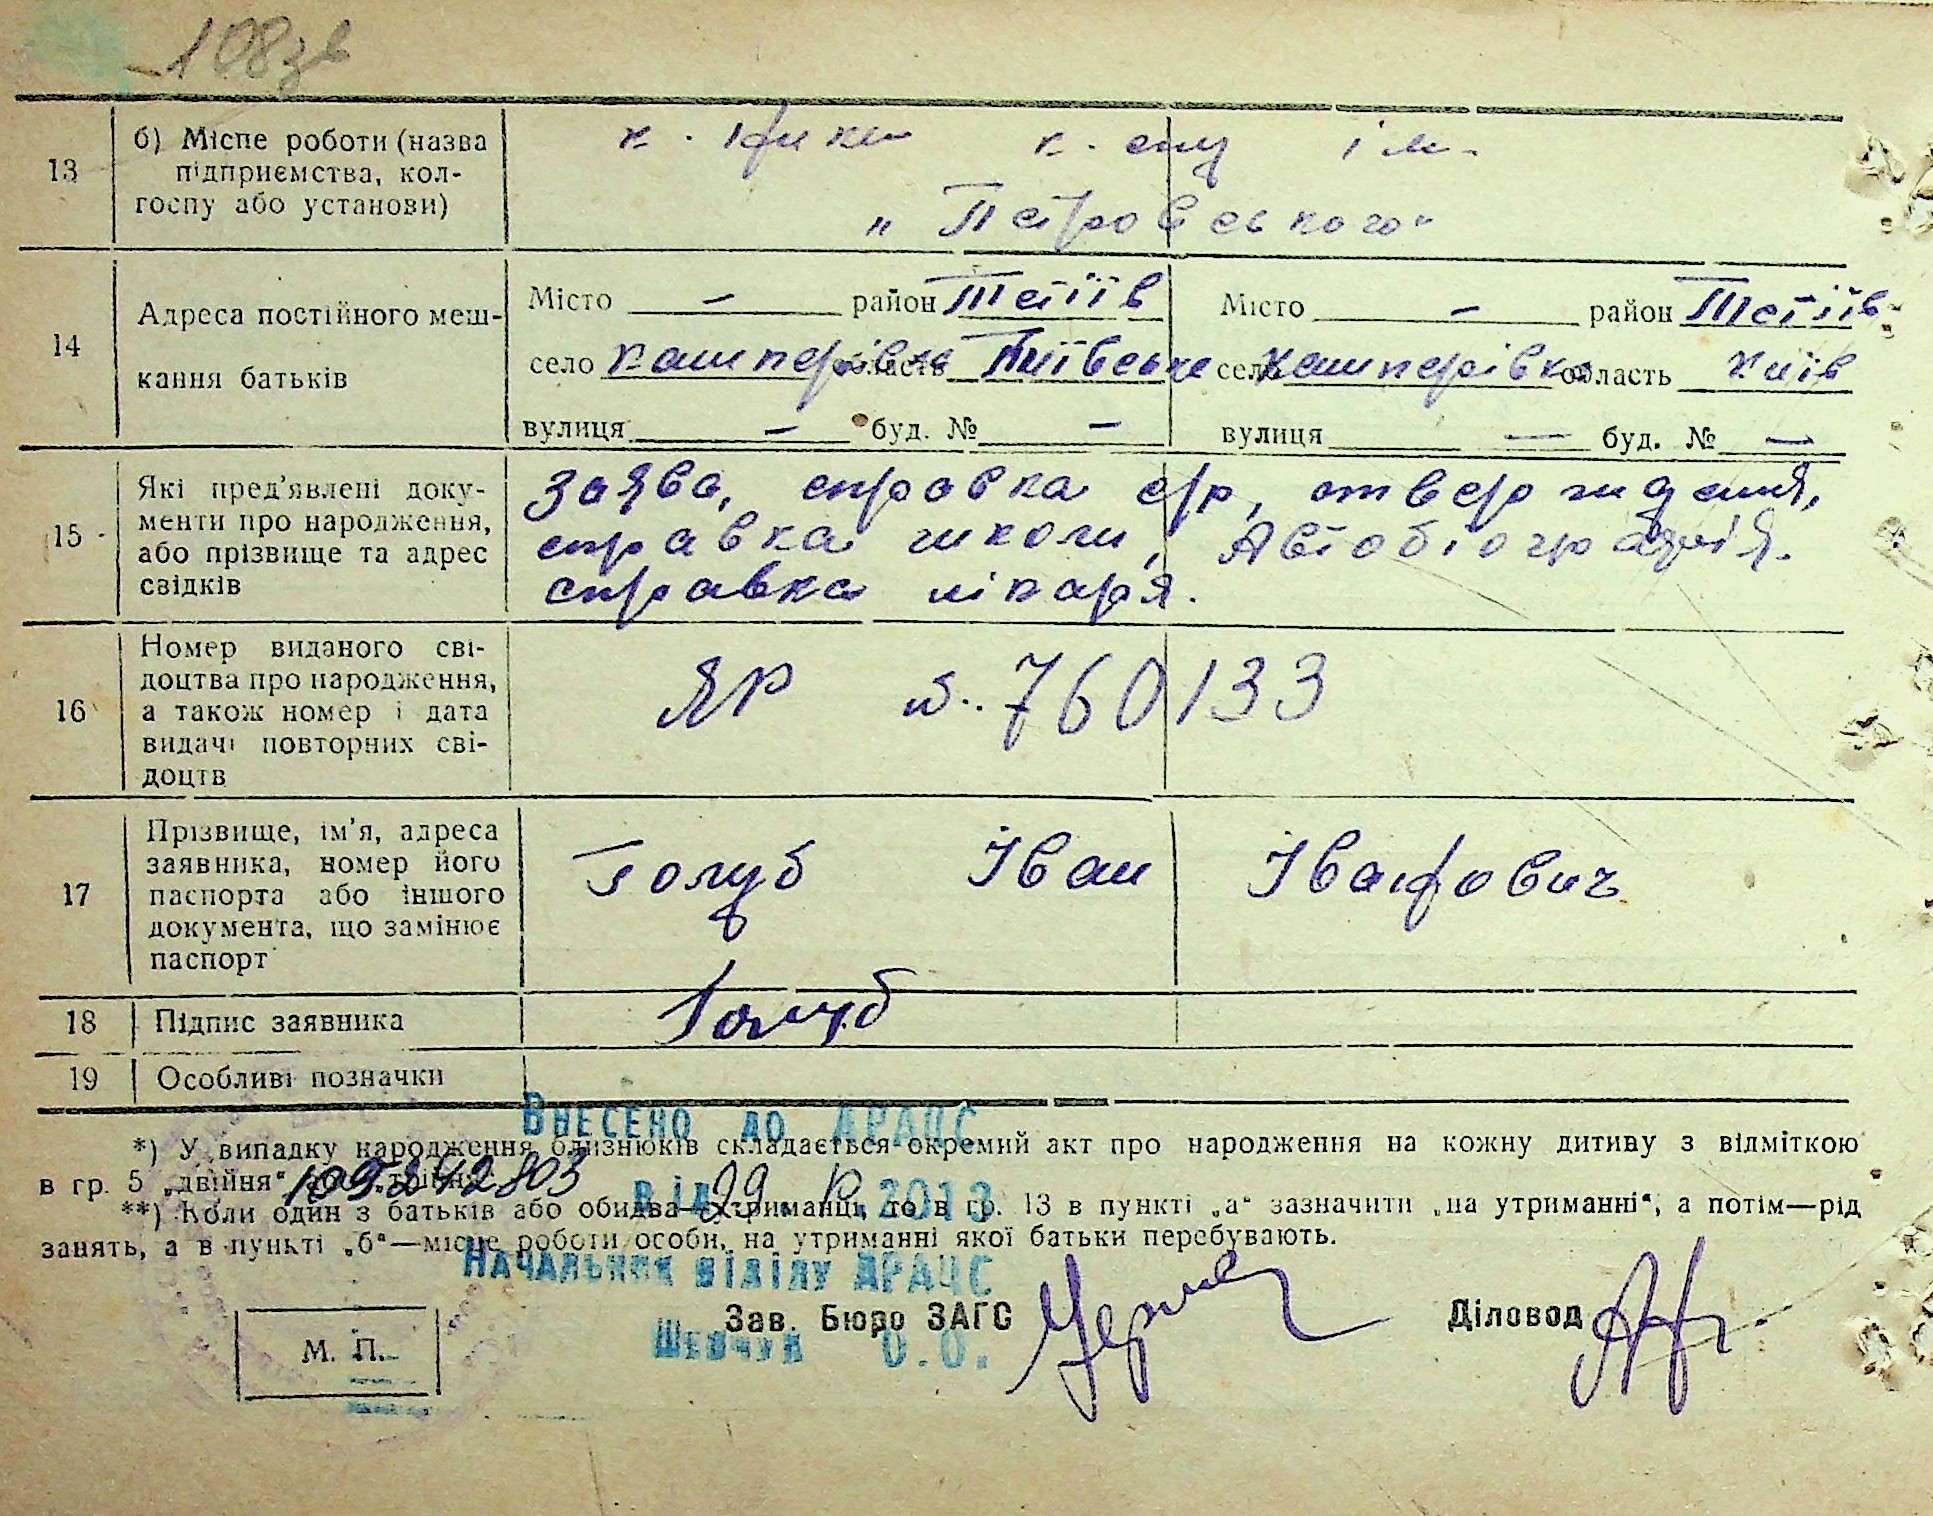 108зв
13 б) Місце роботи (назва
підприємства, кол-
госпу або установи)
к-спу ім.
„Петровського"
14 Адреса постійного меш-
кання батьків
Місто — район Тетіїв Місто — район Тетіїв
село Кашперівка область Київське село Кашперівка область Київ
вулиця — буд. № — вулиця — буд. № —
15 Які пред'явлені доку-
менти про народження,
або прізвище та адрес
свідків
Заява, справка с/р, ствердження,
справка школи, Автобіографія.
справка лікаря.
16 Номер виданого сві-
доцтва про народження,
а також номер і дата
видачі повторних сві-
доцтв
ЯР №. 760133
17 Прізвище, ім'я, адреса
заявника, номер його
паспорта або іншого
документа, що замінює
паспорт
Голуб Іван
18 Підпис заявника Голуб
19 Особливі позначки
Внесено до ДРАЦС
*) У випадку народження близнюків складається окремий акт про народження на кожну дитину з відміткою
в гр. 5 „двійня"
від 29 2013
**) Коли один з батьків або обидва—утриманці, то в гр. 13 в пункті „а" зазначити „на утриманні", а потім—рід
занять, а в пункті „б"—місце роботи особи, на утриманні якої батьки перебувають.
Начальник відділу ДРАЦС
Зав. Бюро ЗАГС Діловод
Шевчук О.О.
М. П.